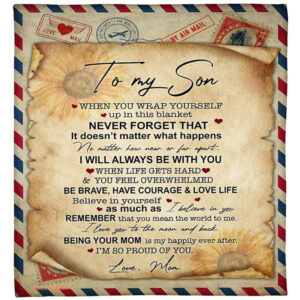 BY AIR MAIL
LOVE MAIL
AIR MAIL
To my Son
WHEN YOU WRAP YOURSELF
up in this blanket
NEVER FORGET THAT
It doesn't matter what happens
No matter how near or far apart.
I WILL ALWAYS BE WITH YOU
WHEN LIFE GETS HARD
& YOU FEEL OVERWHELMED
BE BRAVE, HAVE COURAGE & LOVE LIFE
Believe in yourself
as much as I believe in you
REMEMBER that you mean the world to me.
I love you to the moon and back
BEING YOUR MOM is my happily ever after.
I'M SO PROUD OF YOU.
Love, Mom